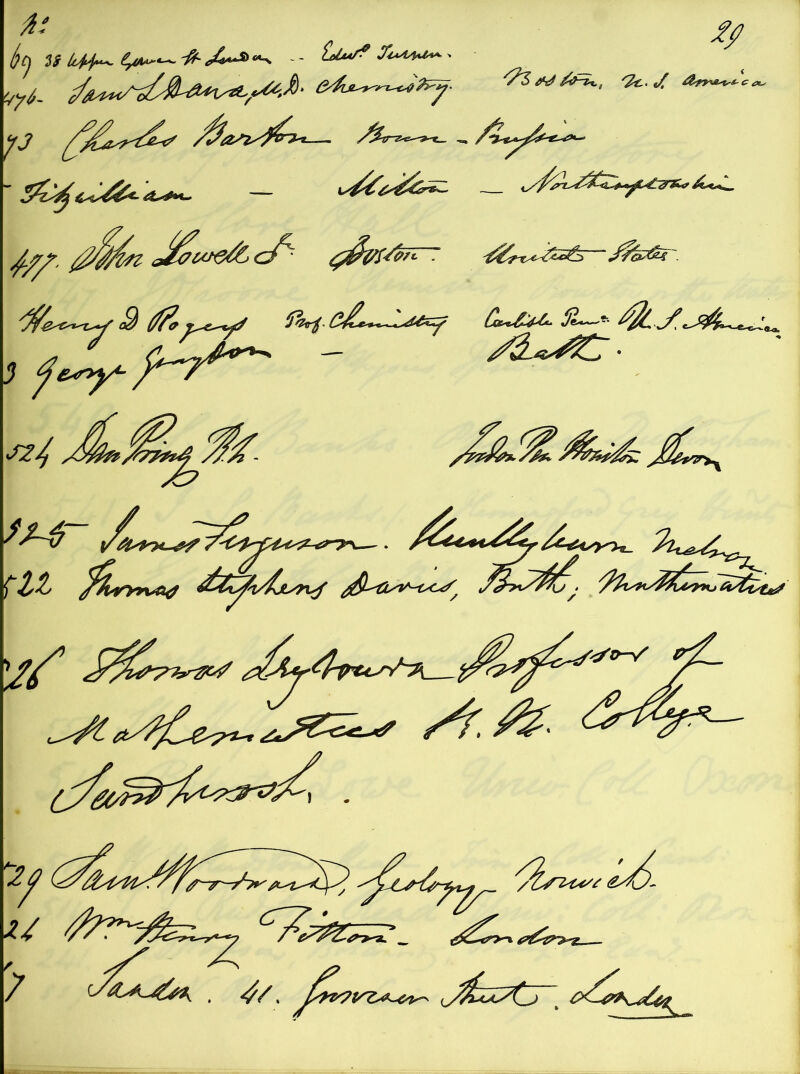 No. 29
69 38 Upper Gower St London -- Edwd. Turner.
476- Saml L Dana, M.D. Chemistry. Boston, U.S. America
73 Charles Barton Bonn - Prussia
Fitzwilliam - Milton - Northamptonshire
477. John Lowell Jr. Boston. United States.
Henry D Rogers Prof. Chemistry Carlisle Penn: U.S. America
3 George Graydon - Bath.
524 Dan Pring Honiton Devon
525 James Ferguson. Huntlyburn Melrose
522 Thomas Stephens Davies, Bath; Mathematics
526 Thomas Leybourn Professor of
Mathematics R. M. College
Sandhurst.
529 Saml. Woodward, Geology Norwich.
24 Wm Henry Fitton - London
7 Sandon. 41. Grosvenor Street. London